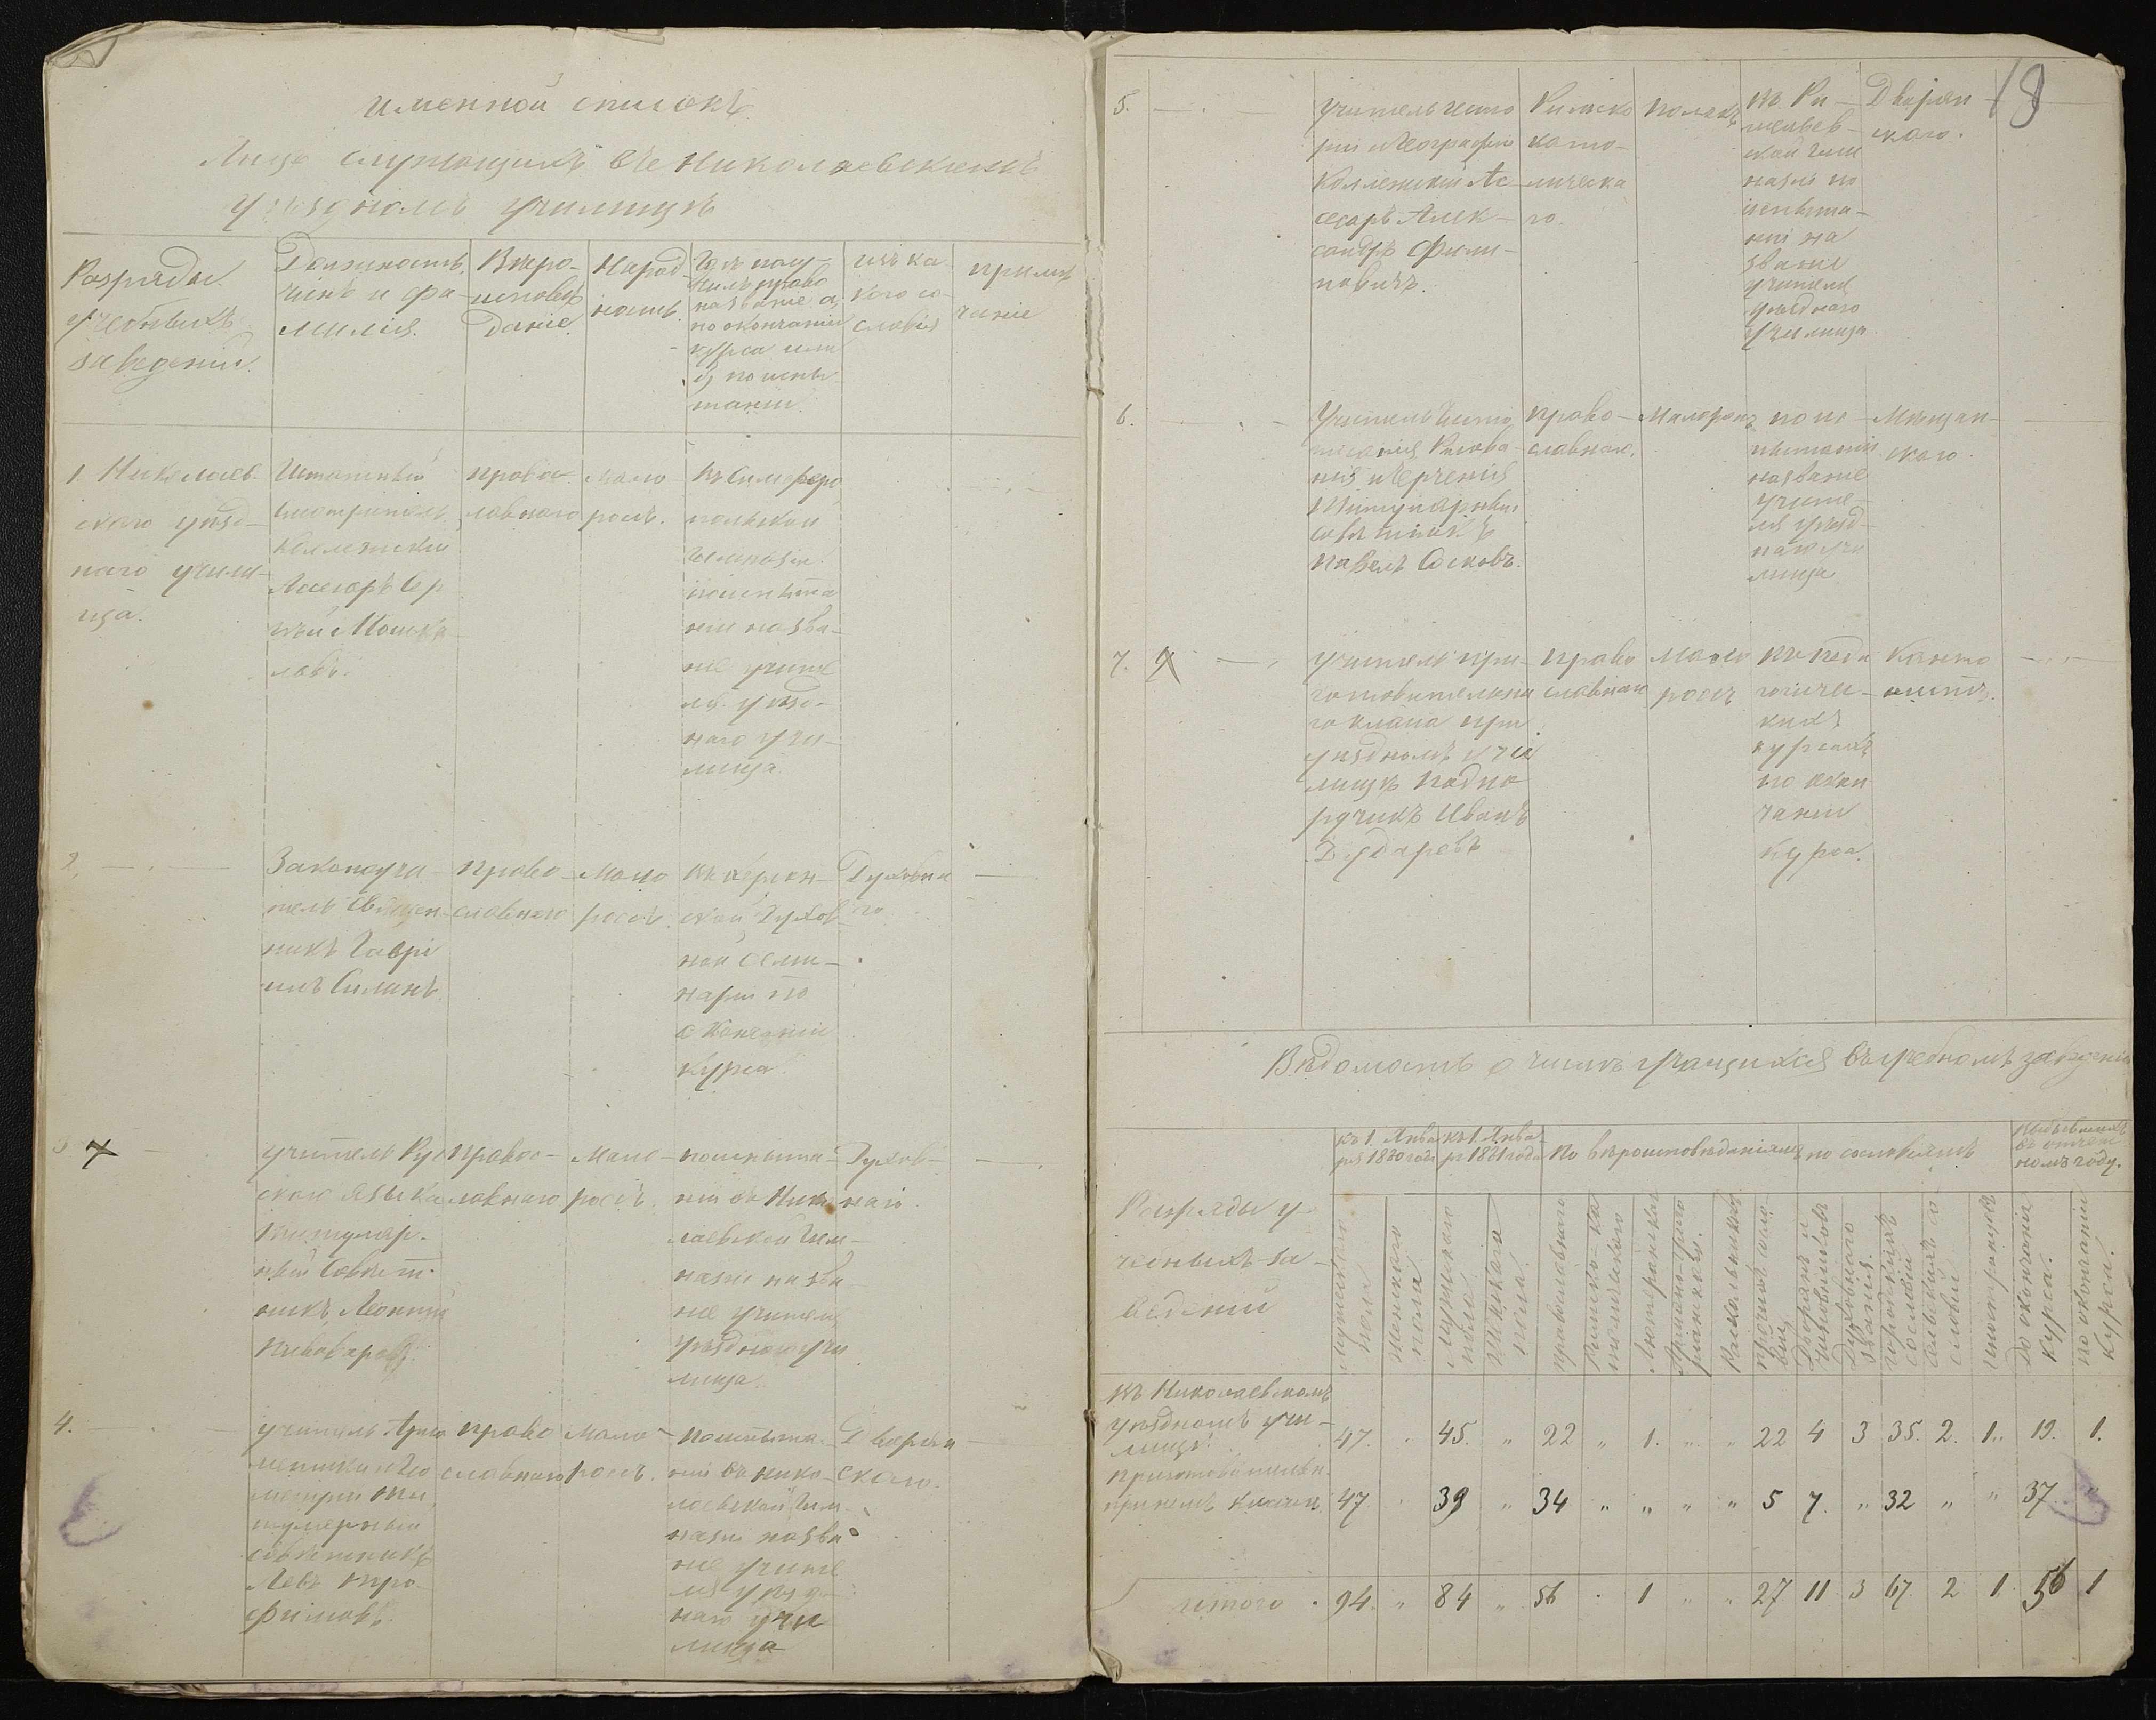 именной списокъ
Лицъ служащихъ въ Николаевскомъ
уѣздномъ училищѣ
Разряды
учебныхъ
заведеній.
Должность,
чинъ и фа-
милія.
Вѣро-
исповѣ
даніе.
Народ-
ность.
Гдѣ полу-
чилъ право
на званіе а,
по окончаніи
курса или
б, по испы-
таніи.
изъ ка-
кого со-
словія
примѣ
чаніе
1. Николаев-
скаго уѣзд-
наго учили-
ща.
Штатный
смотритель
Коллежскій
Асесоръ Сер
гѣй Мошка-
ловъ.
правос-
лавнаго
мало
россъ.
Въ Симферо
польской
Гимназіи
по испыта
нію на зва-
ніе учите
ля уѣзд-
наго учи-
лища
2.
Законоучи-
тель Священ-
никъ Гаврі
илъ Симанъ
право-
славнаго
Мало
россъ.
Въ Херсон-
ской Духов-
ной Семи-
наріи по
окончаніи
курса
Духовна
го
3
учитель Рус
скаго языка
Титуляр-
ный Совѣт-
никъ Леонтій
Пивоваровъ.
правос-
лавнаго
Мало-
россъ.
по испыта-
ній въ Нико
лаевской Гим-
назіи на зва
ніе учителя
уѣзднаго учи
лища
Духов-
наго.
4.
учитель Ариѳ
метики и Гео
метріи Ти
тулярный
совѣтникъ
Левъ Тро-
фимовъ.
право
славнаго
Мало-
россъ.
по испыта-
ній въ Нико-
лаевской Гим-
назіи на зва
ніе учите
ля уѣзд-
наго учи
лища
Дворян
скаго.
18
5.
учитель исто
ріи и Географіи
Коллежскій Ас-
сесоръ Алек-
сандръ Фили-
повичъ.
Римско
като-
ическа
го.
полякъ
въ Ри-
шельев-
ской Гим
назіи по
испыта-
нію на
званіе
учителя
уѣзднаго
училища
Дворян
скаго.
6.
Учитель Чисто
писанія Рисова-
нія и Черченія
Титулярный
совѣтникъ
Павелъ Осиповъ.
право-
славнаго.
Малороссъ
по ис-
пытанію
на званіе
учите-
ля уѣзд-
наго учи
лища
Мѣщан-
скаго.
7.
учитель при-
готовительна
го класа при
уѣздномъ учи
лищѣ Подпо
ручикъ Иванъ
Дударевъ
право
славнаго
Мало
россъ
Въ педа
гогичес-
кихъ
курсахъ
по окон
чаніи
курса.
Канто
нистъ.
Вѣдомость о числѣ учащихся въ учебномъ заведеніи
Разряды у-
чебныхъ за-
веденій
къ 1. Янва
ря 1880 года
къ 1 Янва-
ря 1881 года
По вѣроисповѣданіямъ
по сословіямъ
Выбывшихъ
въ отчет-
номъ году.
Мужескаго
пола
женскаго
пола
Мужескаго
пола
Женскаго
пола
православнаго
Римско-ка
толическаго
Лютеранскаго
Армяно-григо
ріанскаго.
Раскольниковъ
прочихъ исло-
вій
Дворянъ и
чиновниковъ
Духовнаго
званія.
городскихъ
сословій
сельскихъ со
словій
Иностранцевъ
До окончанія
курса.
по окончаніи
курса.
въ Николаевскомъ
уѣздномъ учи-
лищѣ 47. „ 45. „ 22 „ 1. „ „ 22 4 3 35. 2. 1. 19. 1.
приготовительн.
при немъ класѣ 47. „ 39 „ 34 „ „ „ „ 5 7. „ 32 „ „ 37. „
итого 94. „ 84 „ 56 „ 1 „ „ 27 11 3 67. 2 1. 56 1